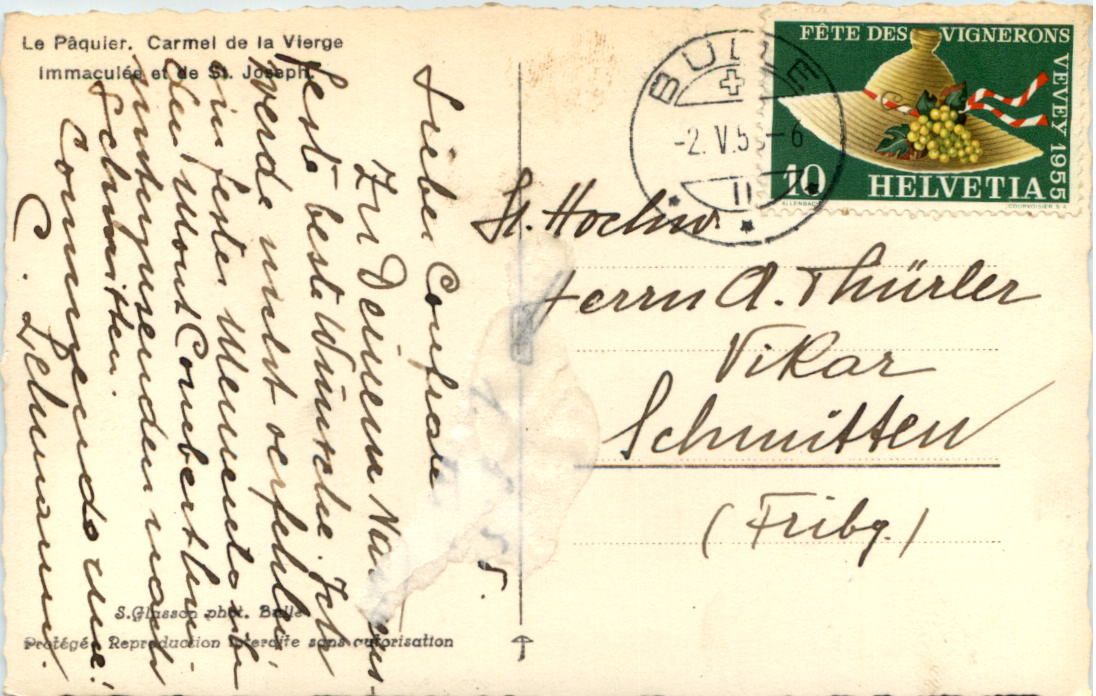 Le Pâquier. Carmel de la Vierge
Immaculée et de St. Joseph.
Lieber Confrater
Zu Deinem Namens-
feste beste Wünsche. Ich
werde nicht verfehlen
ein festes Memento
den Mont Combert
hinunterzusenden nach
Schmitten.
Commendo me!
C. Lehmann.
55.
S. Glasson phot. Bulle
Protégée Reproduction interdite sans autorisation
BULLE
-2. V. 55-6
II
FÊTE DES VIGNERONS
VEVEY 1955
10
HELVETIA
ALLENBACH
COURVOISIER S.A.
Sr. Hochw.
Herrn A. Thürler
Vikar
Schmitten
(Fribg.)